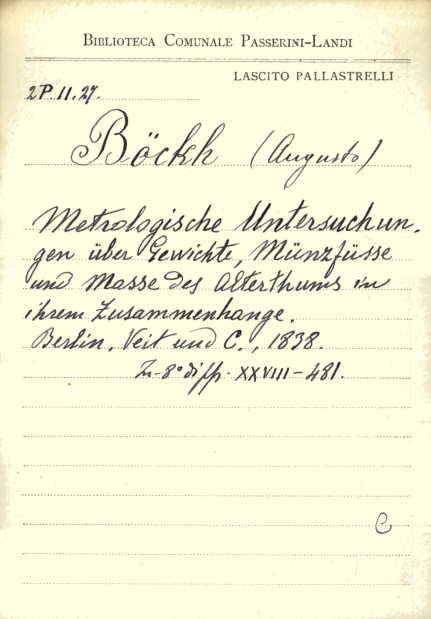 BIBLIOTECA COMUNALE PASSERINI-LANDI
LASCITO PALLASTRELLI
2P.11.27.
Böckh (Augusto)
Metrologische Untersuchun-
gen über Gewichte, Münzfüsse
und Masse des Alterthums in
ihrem Zusammenhange.
Berlin, Veit und C., 1838.
In-8° di pp. XXVIII-481.
C